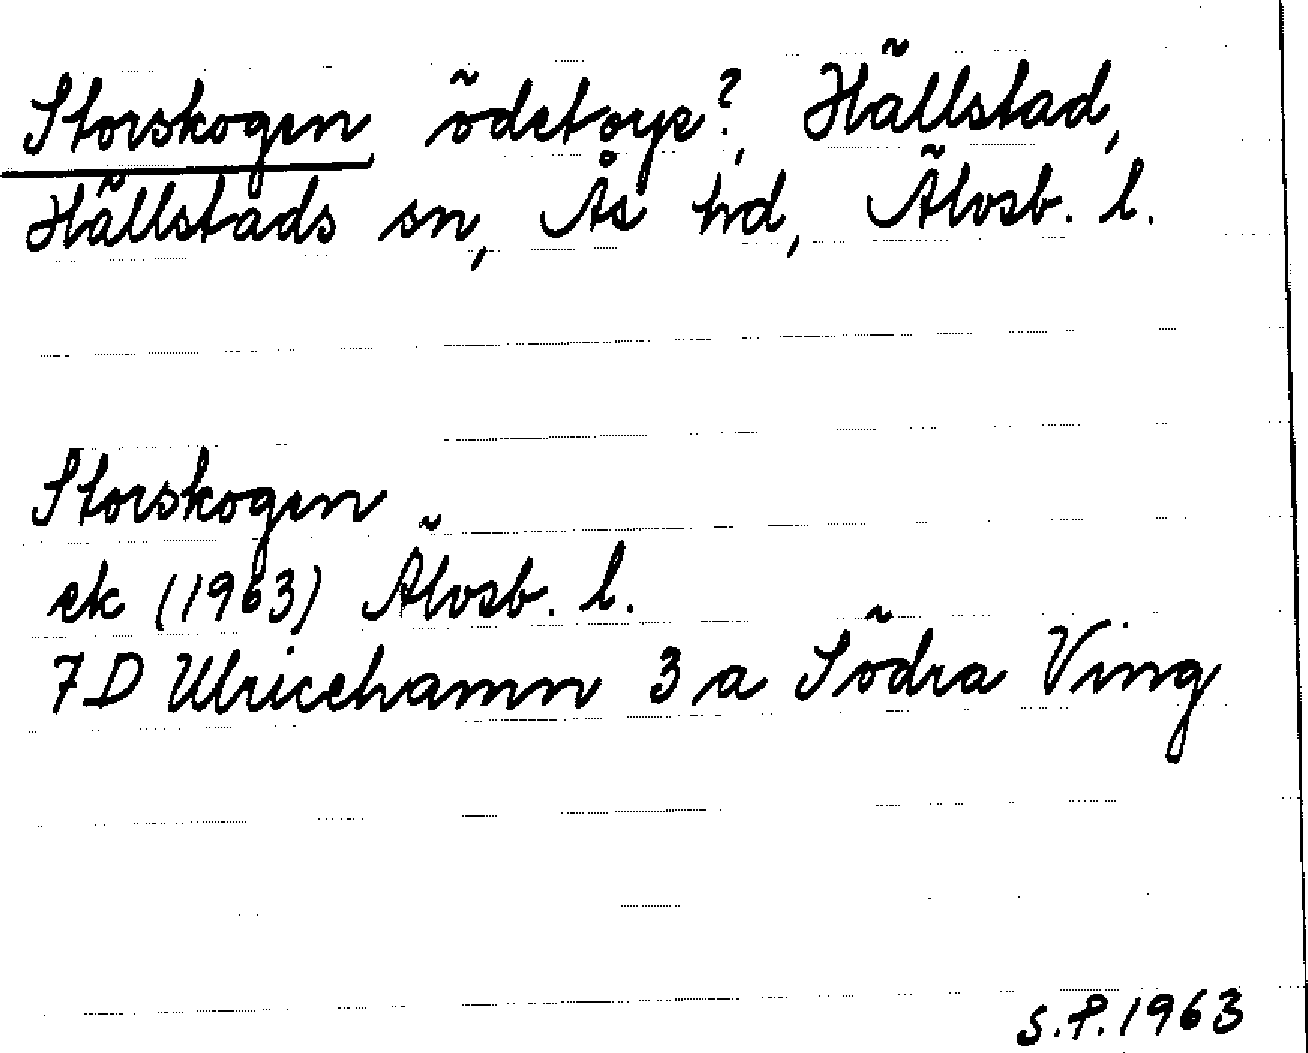 Storskogen, ödetorp?, Hällstad,
Hällstads sn, Ås hd, Älvsb. l.
Storskogen
ek (1963) Älvsb. l.
7D Ulricehamn 3 a Södra Ving
S.P. 1963